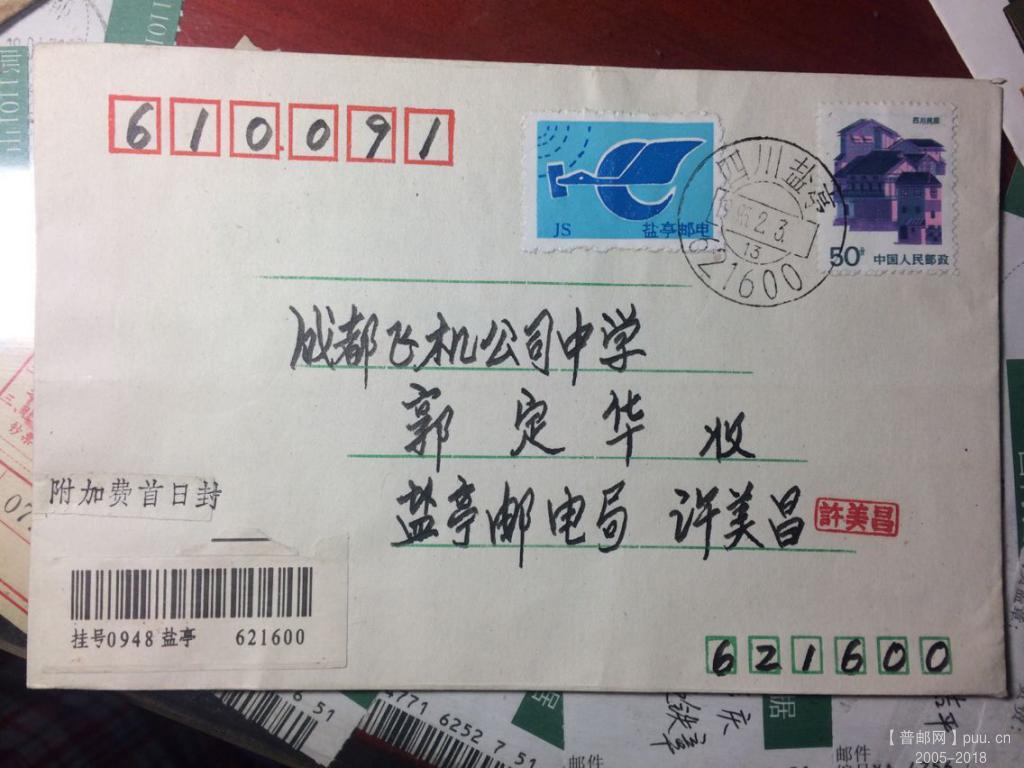 610091
JS 盐亭邮电
四川盐亭
2.3.
13
621600
四川民居
50分 中国人民邮政
成都飞机公司中学
郭定华 收
盐亭邮电局 许美昌
許美昌
附加费首日封
挂号0948 盐亭 621600
621600
6 51
4771 6252 7 51
邮件
【普邮网】puu.cn
2005-2018